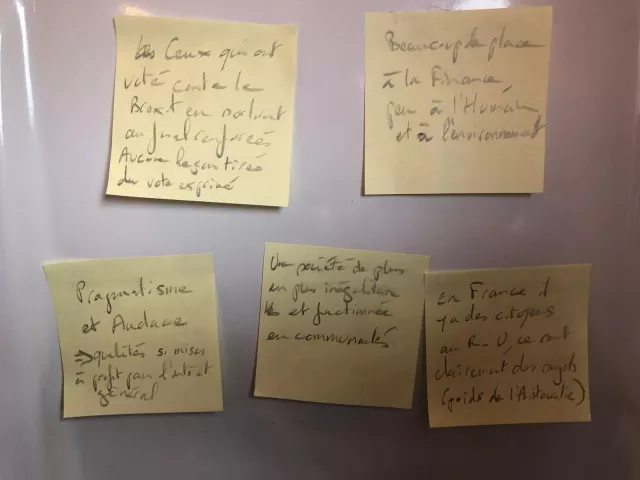 Ceux qui ont
voté contre le
Brexit en sortent
renforcés
Aucune leçon tirée
du vote exprimé
Beaucoup de place
à la Finance,
peu à l'Humain
et à l'environnement
Pragmatisme
et Audace
=> qualités si mises
à profit par l'intérêt
général
Une société de plus
en plus inégalitaire
et fractionnée
en communautés
En France il
y a des citoyens
au R-U, ce sont
clairement des sujets
(poids de l'Aristocratie)